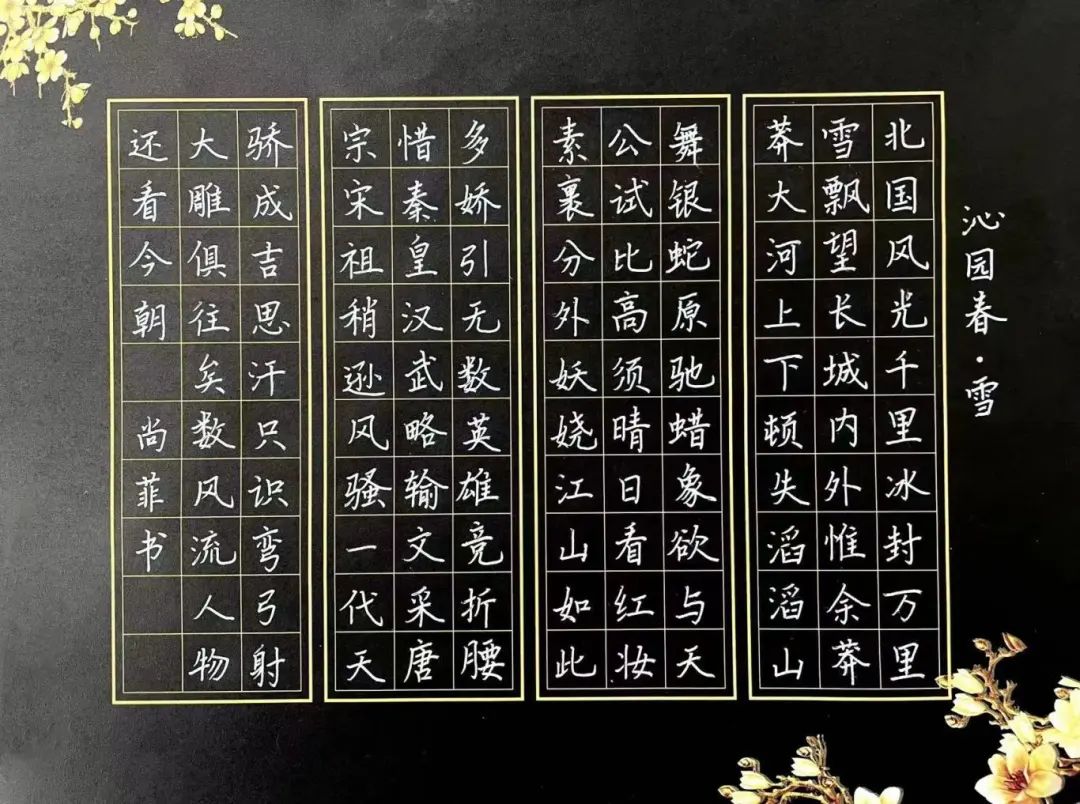 沁园春·雪
北国风光千里冰封万里
雪飘望长城内外惟余莽
莽大河上下顿失滔滔山
舞银蛇原驰蜡象欲与天
公试比高须晴日看红妆
素裹分外妖娆江山如此
多娇引无数英雄竞折腰
惜秦皇汉武略输文采唐
宗宋祖稍逊风骚一代天
骄成吉思汗只识弯弓射
大雕俱往矣数风流人物
还看今朝 尚菲书